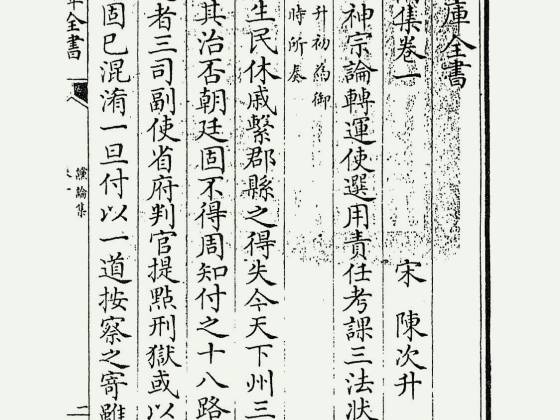 庫全書
集卷一
宋 陳次升
神宗論轉運使選用責任考課三法狀
升初為御
時所奏
生民休戚繫郡縣之得失今天下州三
其治否朝廷固不得周知付之十八路
者三司副使省府判官提點刑獄或以
固已混淆一旦付以一道按察之寄雖
全書
讜論集
二